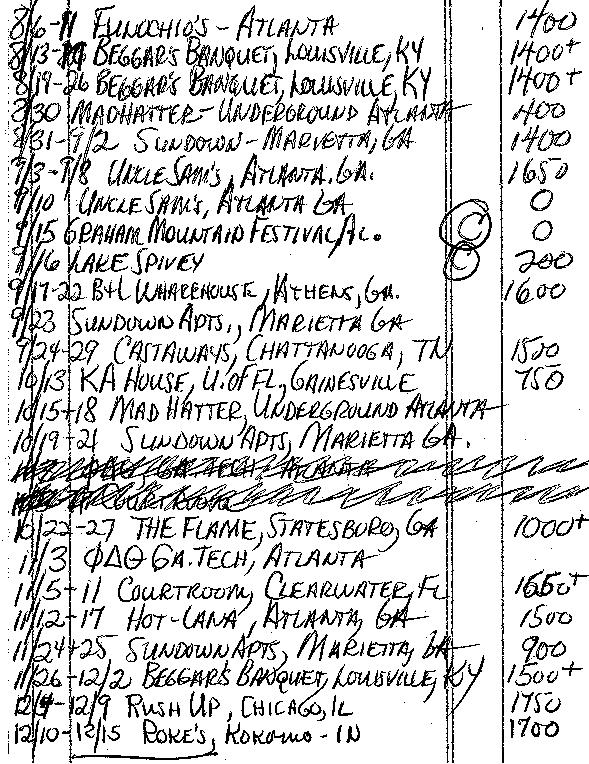 8/6-11 FUNOCHIO'S - ATLANTA 1400
8/13- BEGGAR'S BANQUET, LOUISVILLE, KY 1400+
8/19-26 BEGGAR'S BANQUET, LOUISVILLE, KY 1400+
8/30 MADHATTER - UNDERGROUND ATLANTA 400
8/31-9/2 SUNDOWN - MARIETTA, GA 1400
9/3-9/8 UNCLE SAM'S, ATLANTA. GA. 1650
9/10 UNCLE SAM'S, ATLANTA GA 0
9/15 GRAHAM MOUNTAIN FESTIVAL/AL. C 0
9/16 LAKE SPIVEY C 200
9/17-22 B+L WHAREHOUSE, ATHENS, GA. 1600
9/23 SUNDOWN APTS., MARIETTA GA
9/24-29 CASTAWAYS, CHATTANOOGA, TN 1500
10/13 KA HOUSE, U. of FL, GAINESVILLE 750
10/15+18 MAD HATTER, UNDERGROUND ATLANTA
10/19+21 SUNDOWN APTS, MARIETTA GA.
GA TECH, ATLANTA
COURTROOM
10/22-27 THE FLAME, STATESBORO, GA 1000+
11/3 ΦΔΘ GA. TECH, ATLANTA
11/5+11 COURTROOM, CLEARWATER, FL 1650+
11/12-17 HOT-LANA', ATLANTA, GA 1500
11/24+25 SUNDOWN APTS, MARIETTA, GA 900
11/26-12/2 BEGGAR'S BANQUET, LOUISVILLE, KY 1500+
12/4-12/9 RUSH UP, CHICAGO, IL 1750
12/10-12/15 DOKE'S, KOKOMO - IN 1700